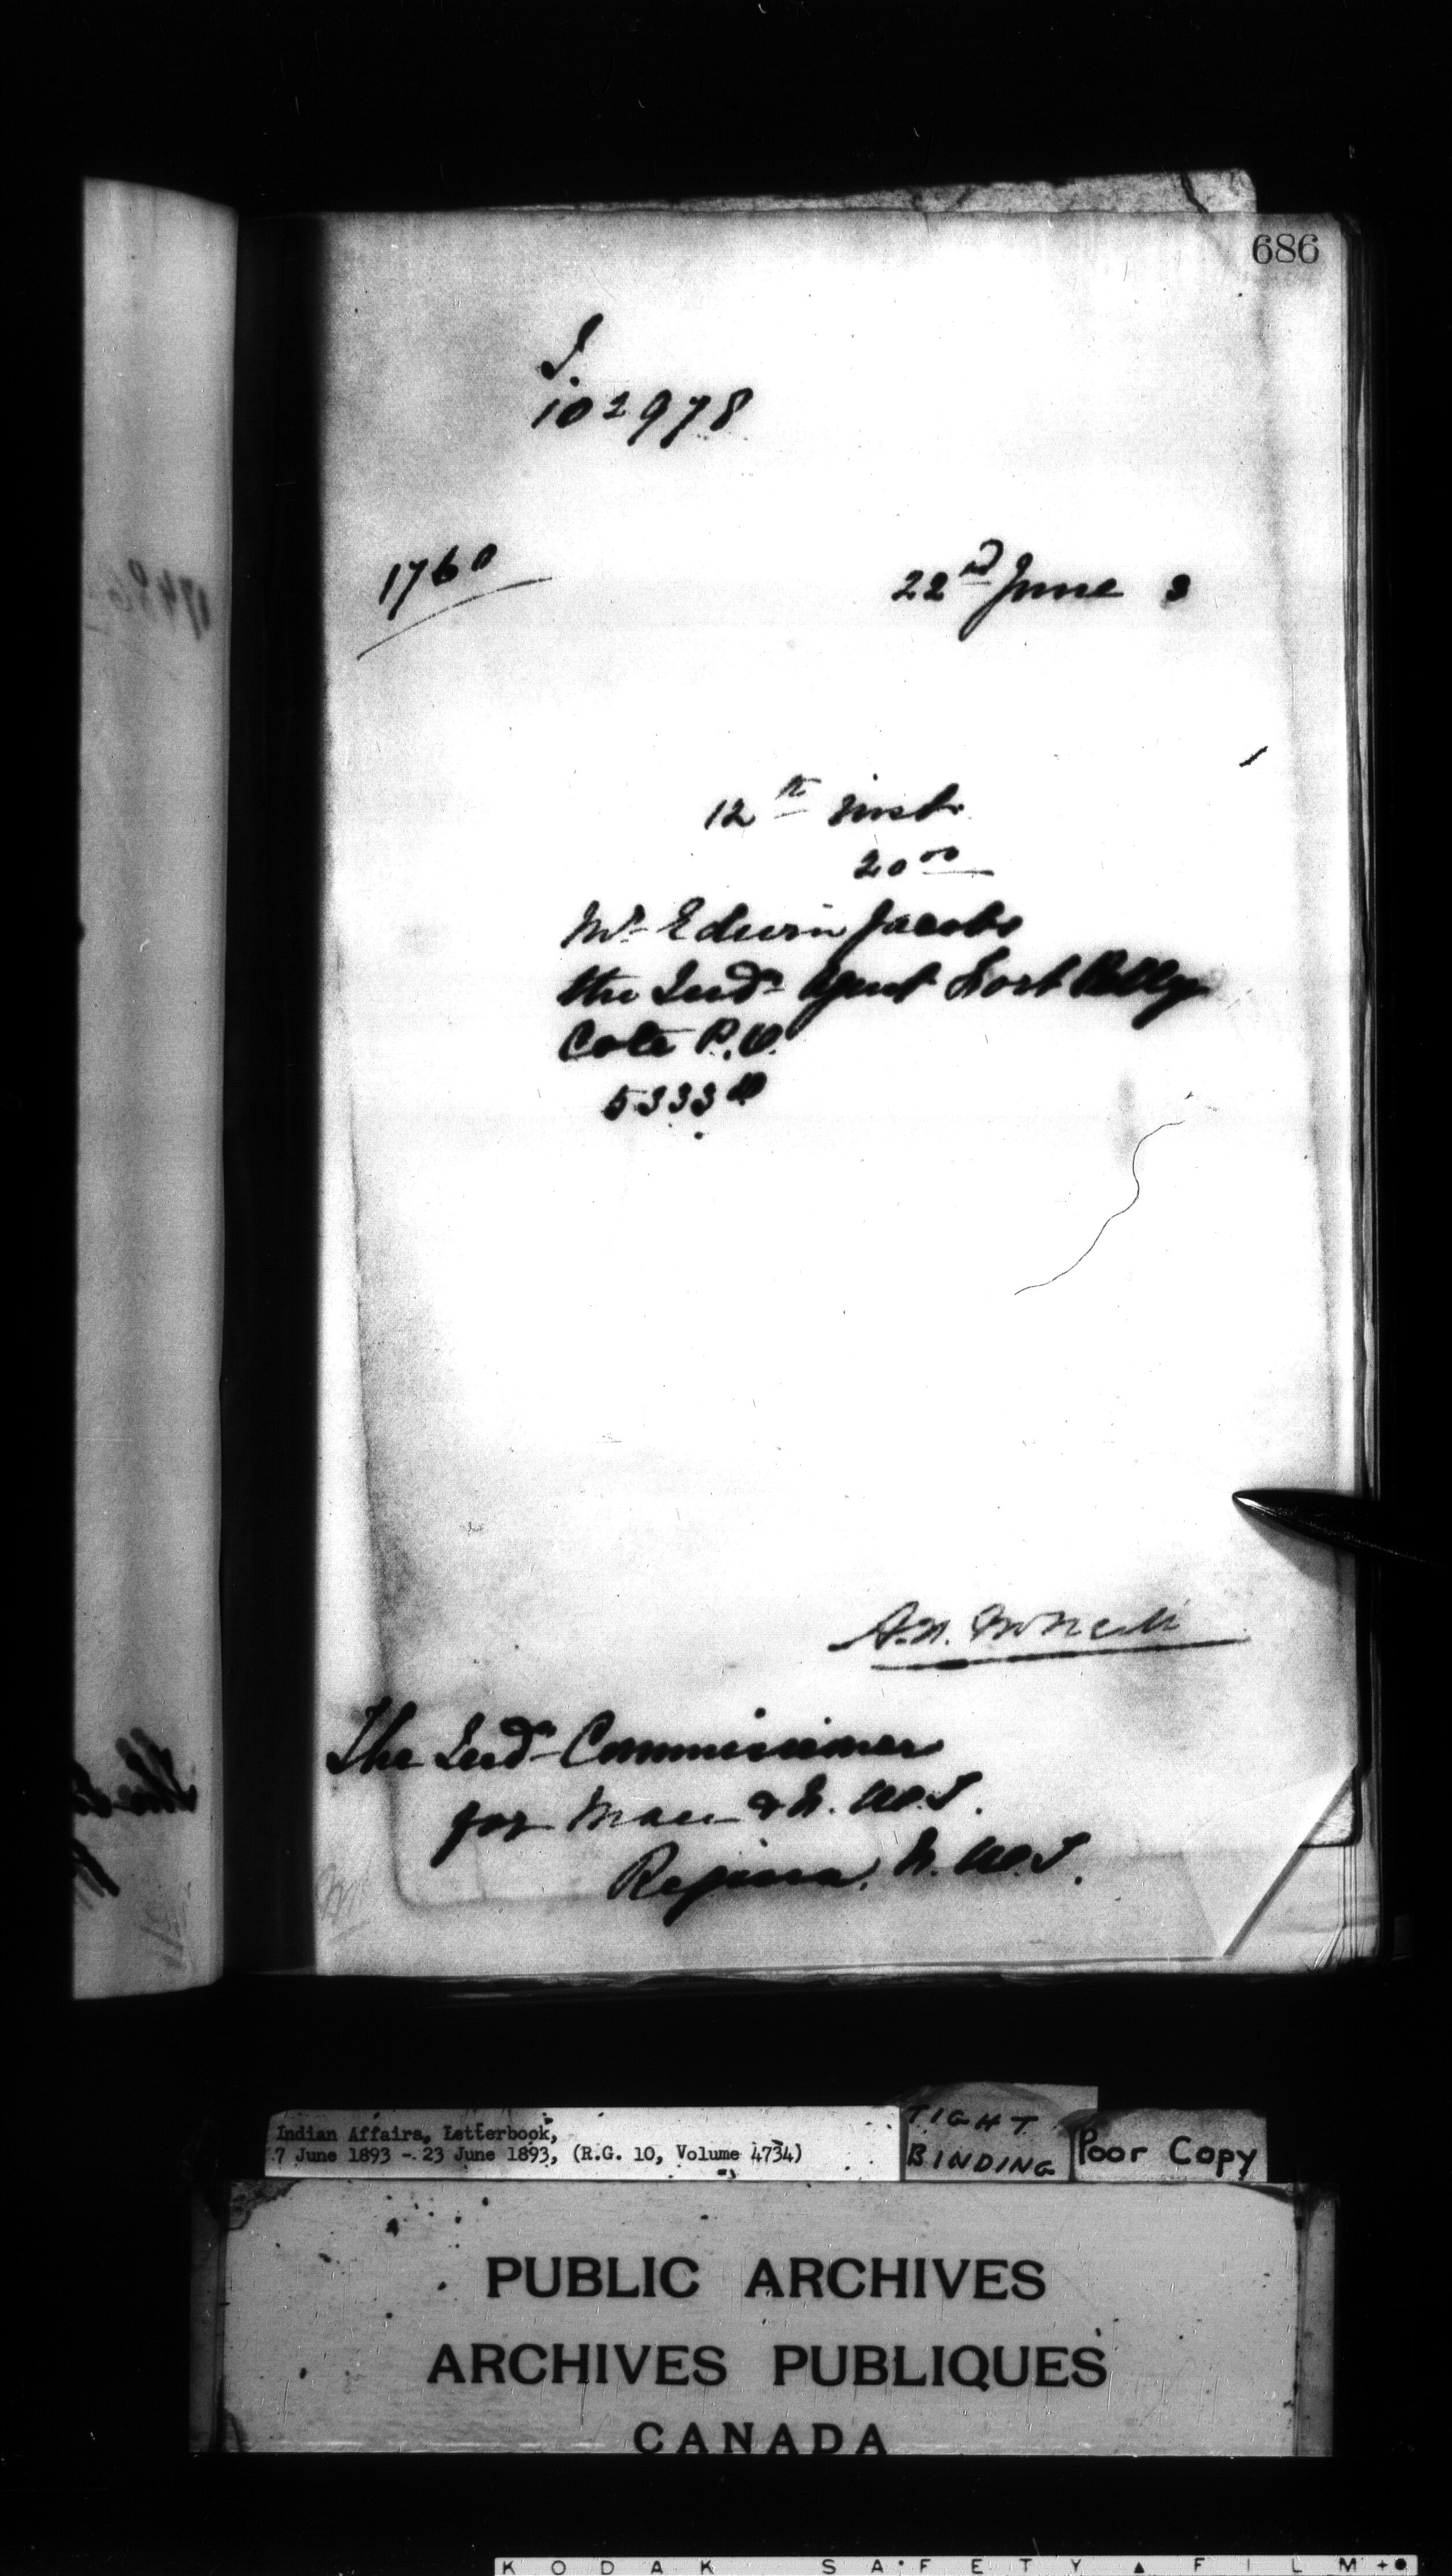 686
102978
1760
22nd June 3
12th inst.
20 00
Mr Edwin Jacobs
the Indn Agent Fort Pelly
Cote P.O.
5333
The Indn Commissioner
for Man & N.W.T.
Regina, N.W.T.
Indian Affairs, Letterbook,
7 June 1893 - 23 June 1893, (R.G. 10, Volume 4734)
TIGHT
BINDING
Poor Copy
PUBLIC ARCHIVES
ARCHIVES PUBLIQUES
CANADA
KODAK SAFETY ▲ FILM